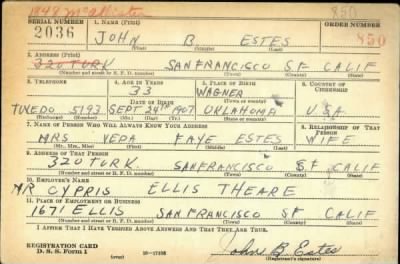 1848 McAllister 850
SERIAL NUMBER 1. NAME (Print) ORDER NUMBER
2036 JOHN B ESTES 850
(First) (Middle) (Last)
2. ADDRESS (Print)
320 TURK SANFRANCISCO SF CALIF
(Number and street or R. F. D. number) (Town) (County) (State)
3. TELEPHONE 4. AGE IN YEARS 5. PLACE OF BIRTH 6. COUNTRY OF CITIZENSHIP
33 WAGNER
DATE OF BIRTH (Town or county)
TUXEDO 5193 SEPT 24TH 1907 OKLAHOMA USA
(Exchange) (Number) (Mo.) (Day) (Yr.) (State or country)
7. NAME OF PERSON WHO WILL ALWAYS KNOW YOUR ADDRESS 8. RELATIONSHIP OF THAT PERSON
MRS VEDA FAYE ESTES WIFE
(Mr., Mrs., Miss) (First) (Middle) (Last)
9. ADDRESS OF THAT PERSON
320 TURK SANFRANCISCO SF CALIF
(Number and street or R. F. D. number) (Town) (County) (State)
10. EMPLOYER'S NAME
MR CYPRIS ELLIS THEARE
11. PLACE OF EMPLOYMENT OR BUSINESS
1671 ELLIS SAN FRANCISCO SF CALIF
(Number and street or R. F. D. number) (Town) (County) (State)
I AFFIRM THAT I HAVE VERIFIED ABOVE ANSWERS AND THAT THEY ARE TRUE.
REGISTRATION CARD
D. S. S. Form 1 (over) 16-17105 John B. Estes
(Registrant's signature)